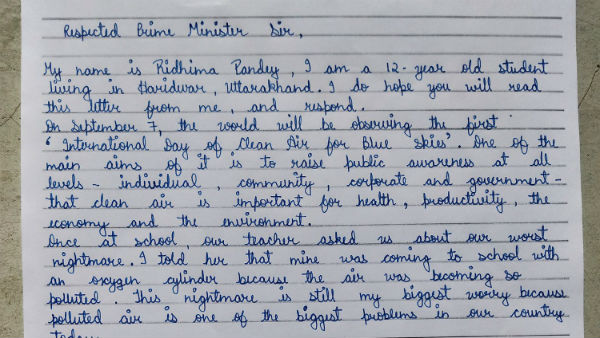 Respected Prime Minister Sir,
My name is Ridhima Pandey, I am a 12-year old student
living in Haridwar, Uttarakhand. I do hope you will read
this letter from me, and respond.
On September 7, the world will be observing the first
'International Day of Clean Air for Blue Skies'. One of the
main aims of it is to raise public awareness at all
levels - individual, community, corporate and government -
that clean air is important for health, productivity, the
economy and the environment.
Once at school, our teacher asked us about our worst
nightmare. I told her that mine was coming to school with
an oxygen cylinder because the air was becoming so
polluted. This nightmare is still my biggest worry because
polluted air is one of the biggest problems in our country
today